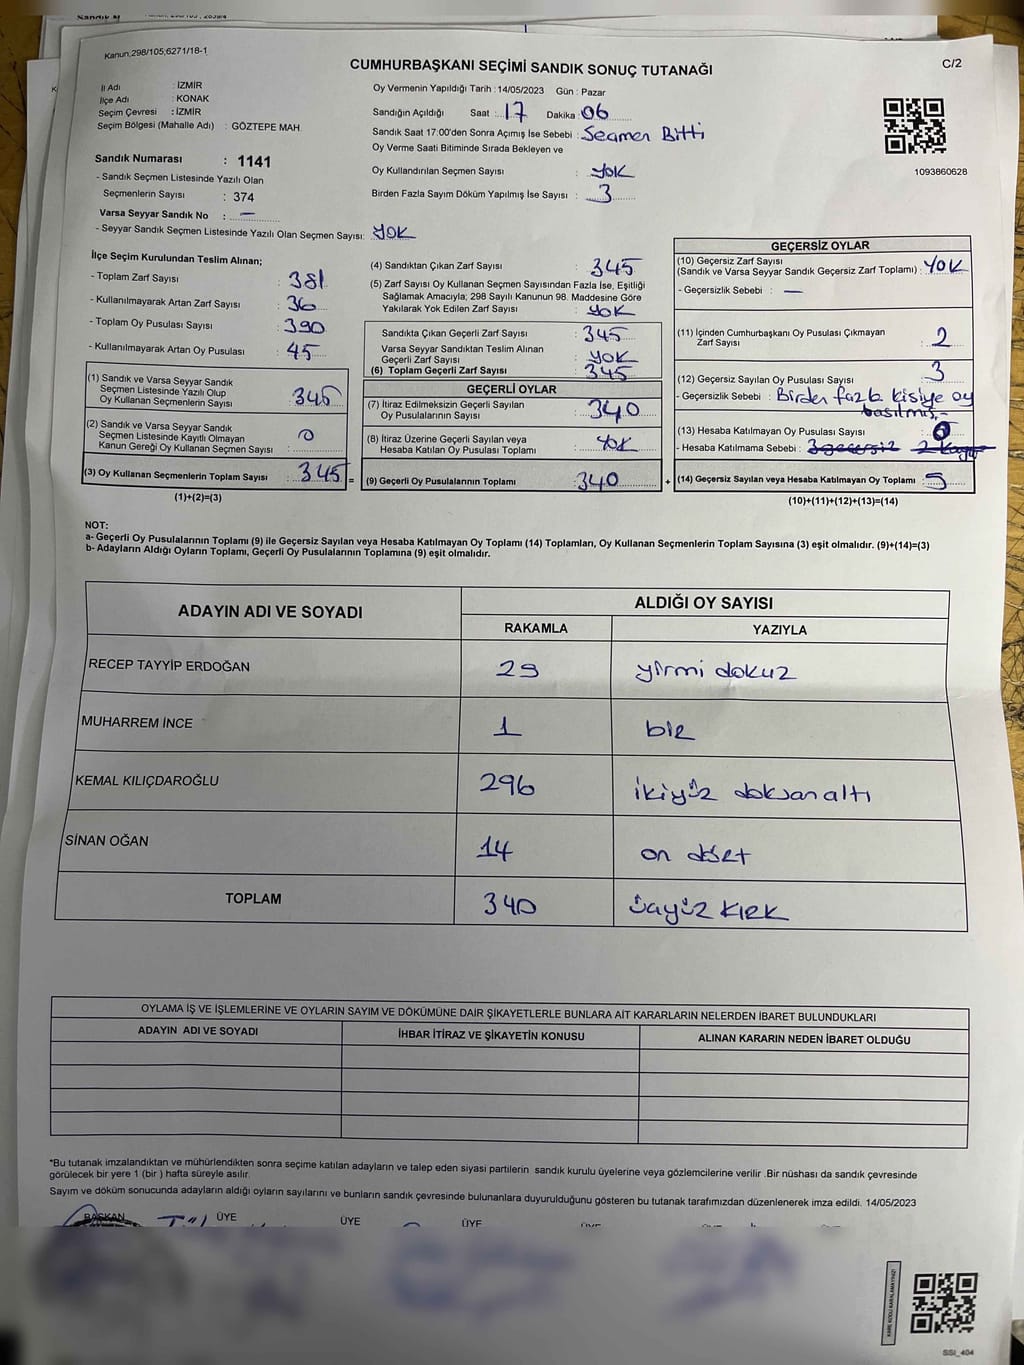 Kanun;298/105;6271/18-1
CUMHURBAŞKANI SEÇİMİ SANDIK SONUÇ TUTANAĞI
C/2
İl Adı : İZMİR
İlçe Adı : KONAK
Seçim Çevresi : İZMİR
Seçim Bölgesi (Mahalle Adı) : GÖZTEPE MAH.
Sandık Numarası : 1141
- Sandık Seçmen Listesinde Yazılı Olan
Seçmenlerin Sayısı : 374
Varsa Seyyar Sandık No : —
- Seyyar Sandık Seçmen Listesinde Yazılı Olan Seçmen Sayısı: YOK
Oy Vermenin Yapıldığı Tarih : 14/05/2023 Gün : Pazar
Sandığın Açıldığı Saat : 17 Dakika : 06
Sandık Saat 17:00'den Sonra Açımış İse Sebebi : Seçmen Bitti
Oy Verme Saati Bitiminde Sırada Bekleyen ve
Oy Kullandırılan Seçmen Sayısı : YOK
Birden Fazla Sayım Döküm Yapılmış İse Sayısı : 3
1093860628
İlçe Seçim Kurulundan Teslim Alınan;
- Toplam Zarf Sayısı : 381
- Kullanılmayarak Artan Zarf Sayısı : 36
- Toplam Oy Pusulası Sayısı : 390
- Kullanılmayarak Artan Oy Pusulası : 45
(1) Sandık ve Varsa Seyyar Sandık
Seçmen Listesinde Yazılı Olup
Oy Kullanan Seçmenlerin Sayısı : 345
(2) Sandık ve Varsa Seyyar Sandık
Seçmen Listesinde Kayıtlı Olmayan
Kanun Gereği Oy Kullanan Seçmen Sayısı : 0
(3) Oy Kullanan Seçmenlerin Toplam Sayısı : 345 =
(1)+(2)=(3)
(4) Sandıktan Çıkan Zarf Sayısı : 345
(5) Zarf Sayısı Oy Kullanan Seçmen Sayısından Fazla İse, Eşitliği
Sağlamak Amacıyla; 298 Sayılı Kanunun 98. Maddesine Göre
Yakılarak Yok Edilen Zarf Sayısı : YOK
Sandıkta Çıkan Geçerli Zarf Sayısı : 345
Varsa Seyyar Sandıktan Teslim Alınan
Geçerli Zarf Sayısı : YOK
(6) Toplam Geçerli Zarf Sayısı : 345
GEÇERLİ OYLAR
(7) İtiraz Edilmeksizin Geçerli Sayılan
Oy Pusulalarının Sayısı : 340
(8) İtiraz Üzerine Geçerli Sayılan veya
Hesaba Katılan Oy Pusulası Toplamı : YOK
(9) Geçerli Oy Pusulalarının Toplamı : 340 +
GEÇERSİZ OYLAR
(10) Geçersiz Zarf Sayısı
(Sandık ve Varsa Seyyar Sandık Geçersiz Zarf Toplamı) : YOK
- Geçersizlik Sebebi : —
(11) İçinden Cumhurbaşkanı Oy Pusulası Çıkmayan
Zarf Sayısı : 2
(12) Geçersiz Sayılan Oy Pusulası Sayısı : 3
- Geçersizlik Sebebi : Birden fazla kişiye oy
basılmış.-
(13) Hesaba Katılmayan Oy Pusulası Sayısı : 0
- Hesaba Katılmama Sebebi : 3 geçersiz 2 kayıp
(14) Geçersiz Sayılan veya Hesaba Katılmayan Oy Toplamı : 5
(10)+(11)+(12)+(13)=(14)
NOT:
a- Geçerli Oy Pusulalarının Toplamı (9) ile Geçersiz Sayılan veya Hesaba Katılmayan Oy Toplamı (14) Toplamları, Oy Kullanan Seçmenlerin Toplam Sayısına (3) eşit olmalıdır. (9)+(14)=(3)
b- Adayların Aldığı Oyların Toplamı, Geçerli Oy Pusulalarının Toplamına (9) eşit olmalıdır.
ADAYIN ADI VE SOYADI ALDIĞI OY SAYISI
RAKAMLA YAZIYLA
RECEP TAYYİP ERDOĞAN 29 yirmi dokuz
MUHARREM İNCE 1 bir
KEMAL KILIÇDAROĞLU 296 ikiyüz doksan altı
SİNAN OĞAN 14 on dört
TOPLAM 340 üçyüz kırk
OYLAMA İŞ VE İŞLEMLERİNE VE OYLARIN SAYIM VE DÖKÜMÜNE DAİR ŞİKAYETLERLE BUNLARA AİT KARARLARIN NELERDEN İBARET BULUNDUKLARI
ADAYIN ADI VE SOYADI İHBAR İTİRAZ VE ŞİKAYETİN KONUSU ALINAN KARARIN NEDEN İBARET OLDUĞU
*Bu tutanak imzalandıktan ve mühürlendikten sonra seçime katılan adayların ve talep eden siyasi partilerin sandık kurulu üyelerine veya gözlemcilerine verilir .Bir nüshası da sandık çevresinde
görülecek bir yere 1 (bir ) hafta süreyle asılır.
Sayım ve döküm sonucunda adayların aldığı oyların sayılarını ve bunların sandık çevresinde bulunanlara duyurulduğunu gösteren bu tutanak tarafımızdan düzenlenerek imza edildi. 14/05/2023
BAŞKAN ÜYE ÜYE ÜYE ÜYE
KARE KODU KARALAMAYINIZ!
SSI_404